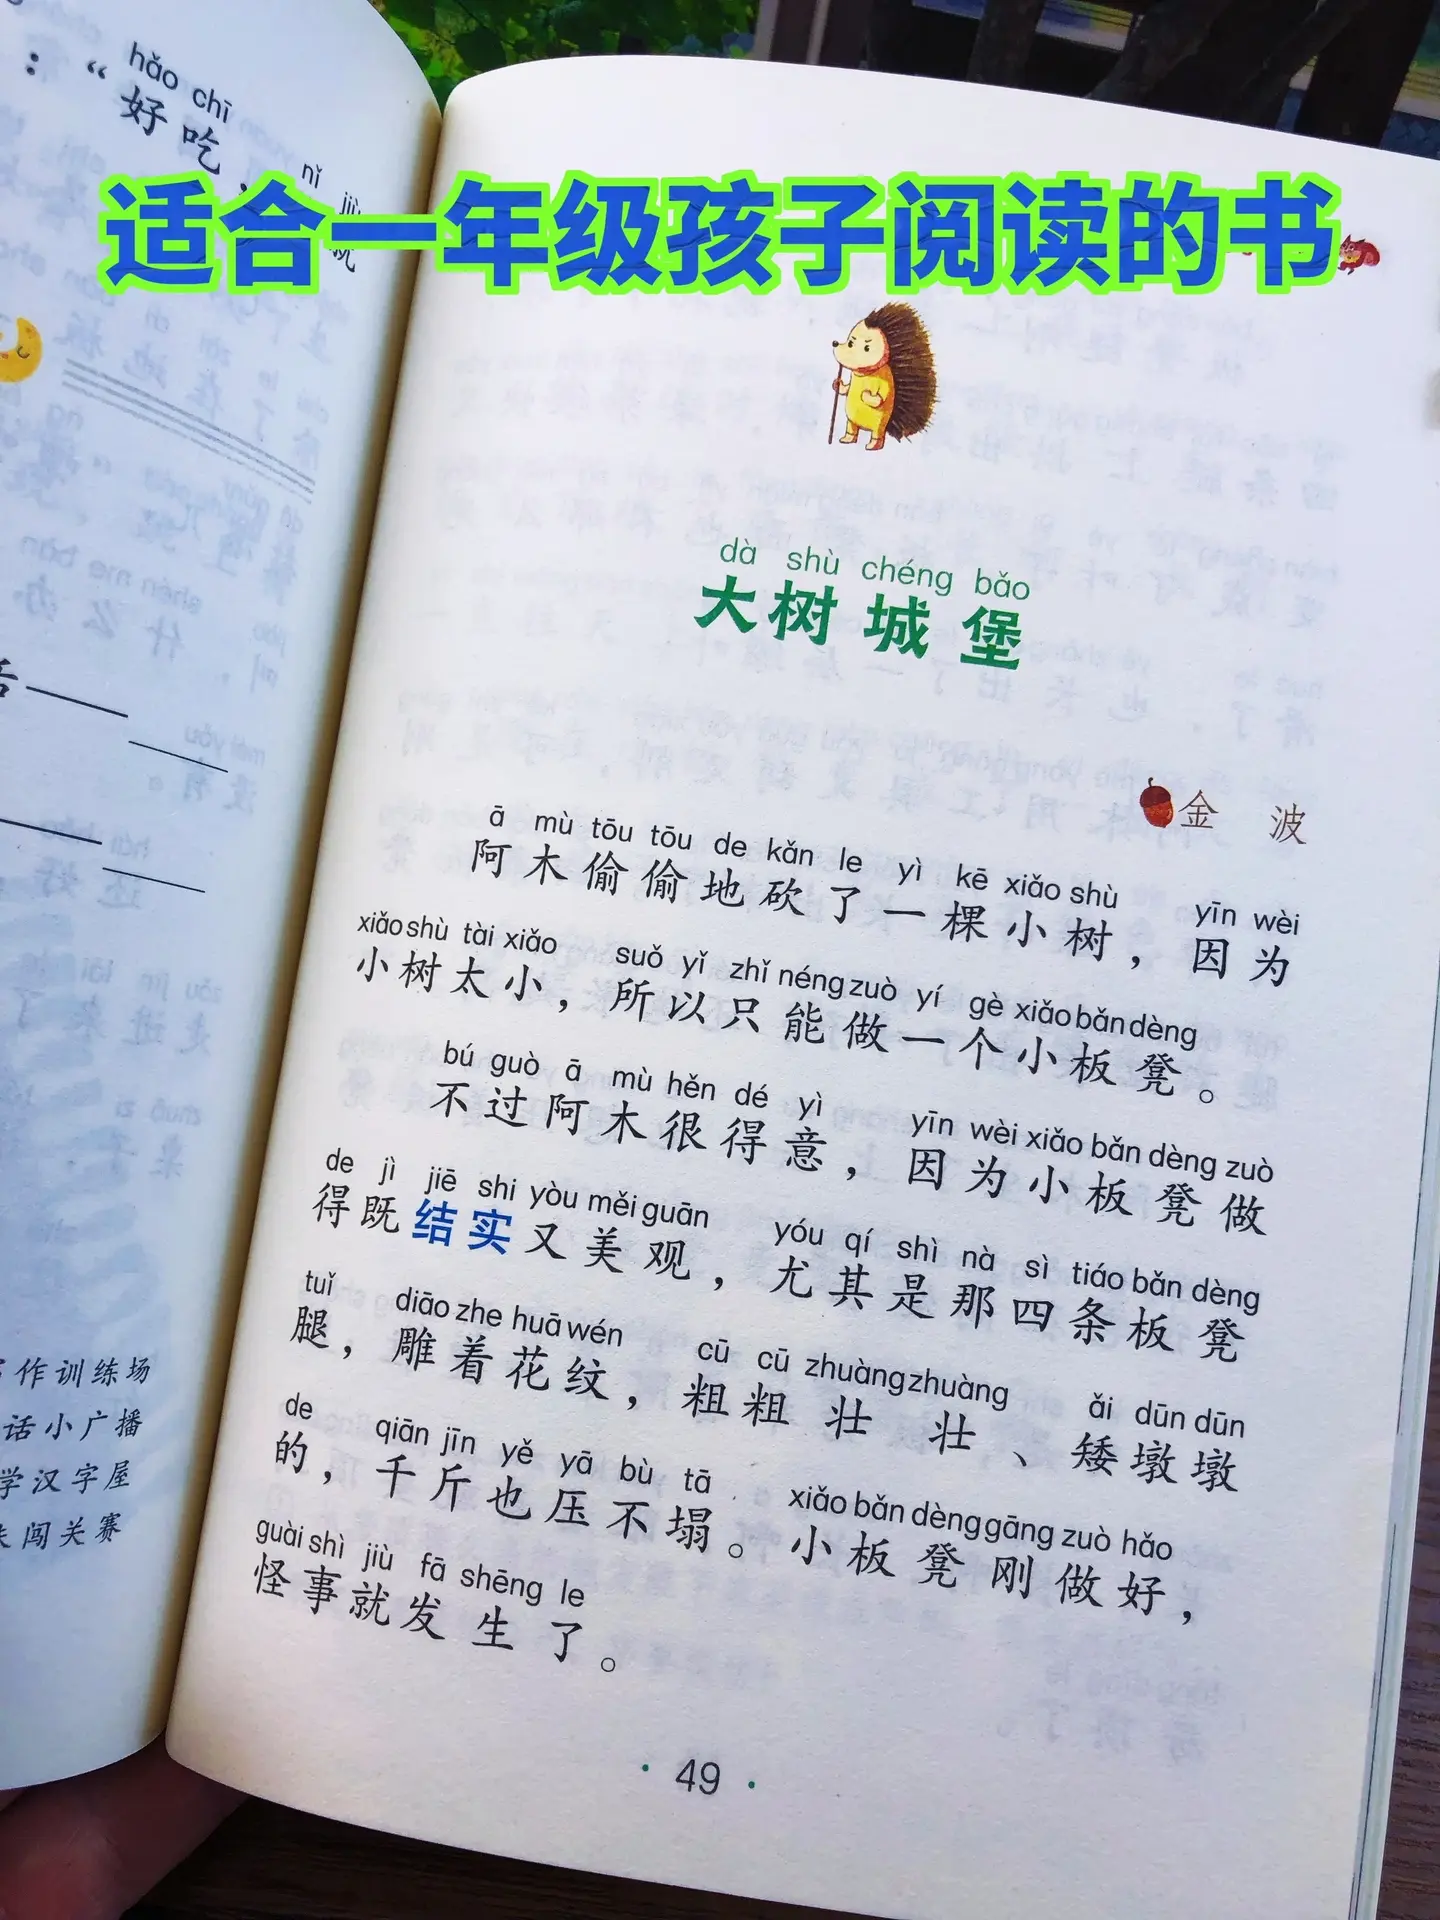 hǎo chī
：“好吃，
nǐ jiù
就
适合一年级孩子阅读的书
dà shù chéng bǎo
大树城堡
金 波
ā mù tōu tōu de kǎn le yì kē xiǎo shù yīn wèi
阿木偷偷地砍了一棵小树，因为
xiǎo shù tài xiǎo suǒ yǐ zhǐ néng zuò yí gè xiǎo bǎn dèng
小树太小，所以只能做一个小板凳。
bú guò ā mù hěn dé yì yīn wèi xiǎo bǎn dèng zuò
不过阿木很得意，因为小板凳做
de jì jiē shi yòu měi guān yóu qí shì nà sì tiáo bǎn dèng
得既结实又美观，尤其是那四条板凳
tuǐ diāo zhe huā wén cū cū zhuàng zhuàng ǎi dūn dūn
腿，雕着花纹，粗粗壮壮、矮墩墩
de qiān jīn yě yā bù tā xiǎo bǎn dèng gāng zuò hǎo
的，千斤也压不塌。小板凳刚做好，
guài shì jiù fā shēng le
怪事就发生了。
作训练场
话小广播
学汉字屋
闯关赛
·49·